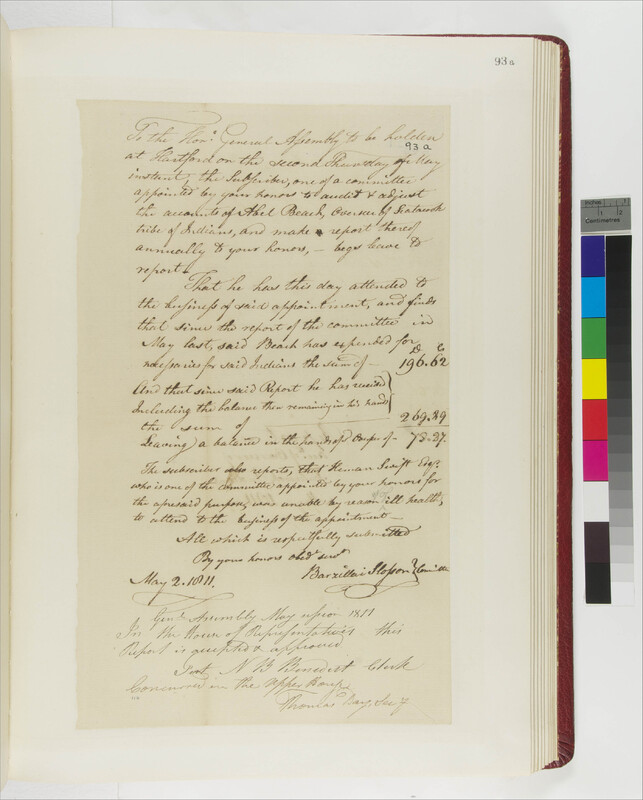 93a
To the Honl. General Assembly to be holden
93 a
at Hartford on the second Thursday of May
instant, the Subscriber, one of a committee
appointed by your honors to audit & adjust
the accounts of Abel Beach, Overseer of Scatacook
tribe of Indians, and make report thereof
annually to your honors, – begs leave to
report –
That he has this day attended to
the business of said appointment, and finds
that since the report of the committee in
May last, said Beach has expended for
D C
necessaries for said Indians the sum of – 196.62
And that since said Report he has received
Including the balance then remaining in his hands
the sum of 269.89
Leaving a balance in the hands of Beach of – 73.27.
The subscriber also reports, that Heman Swift Esqr.
who is one of the committee appointed by your honors for
the aforesaid purpose, was unable by reason ill health,
to attend to the business of the appointment –
All which is respectfully submitted
By your honors obedt. servt.
Barzillai Slosson } Comittee
May 2. 1811.
Genl. Assembly May session 1811
In the House of Representatives this
Report is accepted & approved
Test N B Benedict Clerk
Concurred in the Upper House
Thomas Day, Secy
Inches
1 2
Centimetres